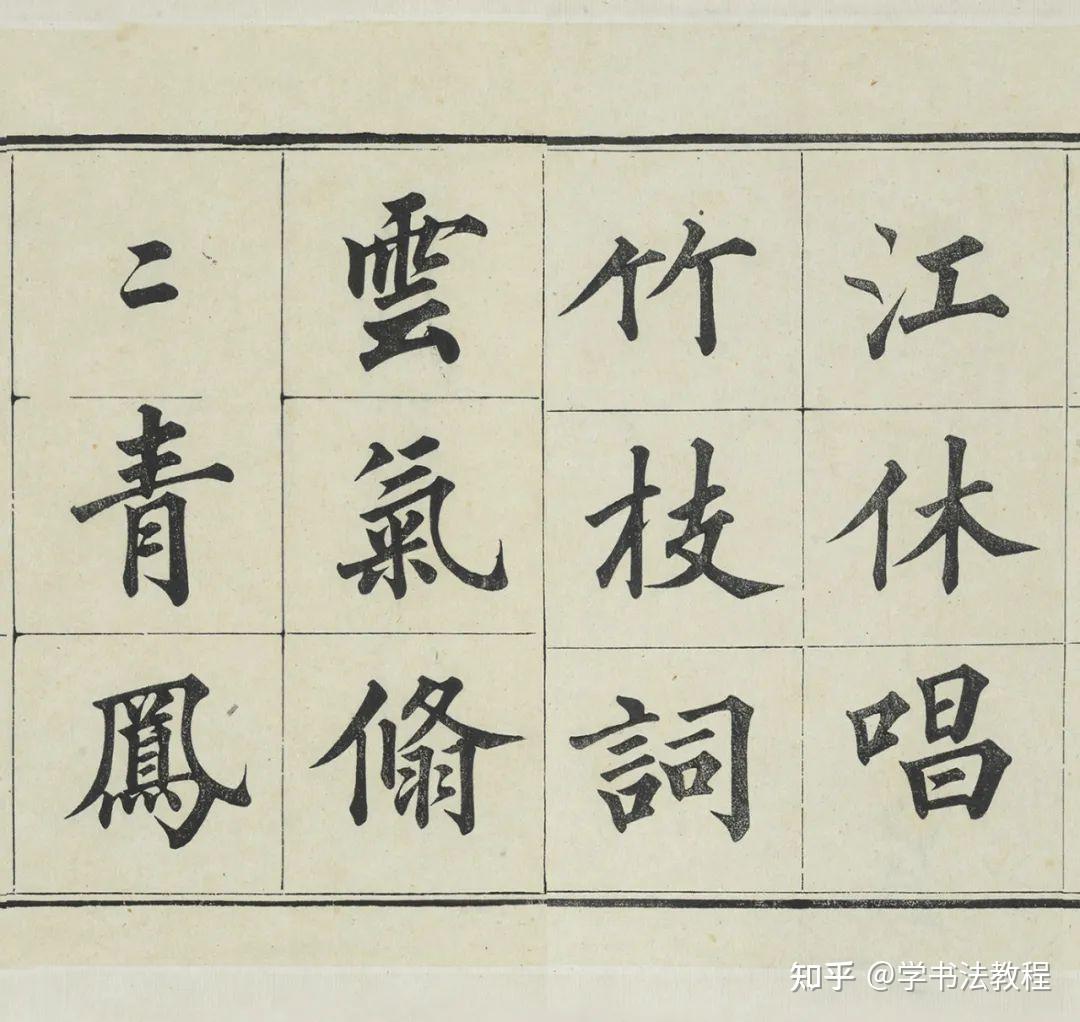 江休唱
竹枝詞
雲氣翛
〻青鳳
知乎 @学书法教程